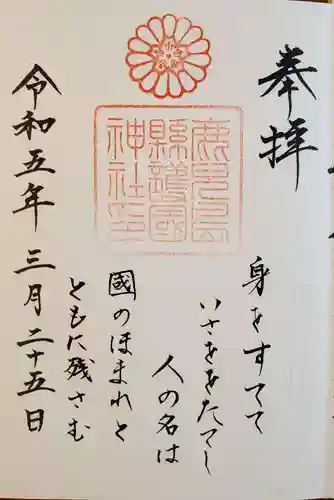 奉拝
鹿児島
縣護國
神社印
身をすてて
いさををたてし
人の名は
國のほまれと
ともに残さむ
令和五年三月二十五日